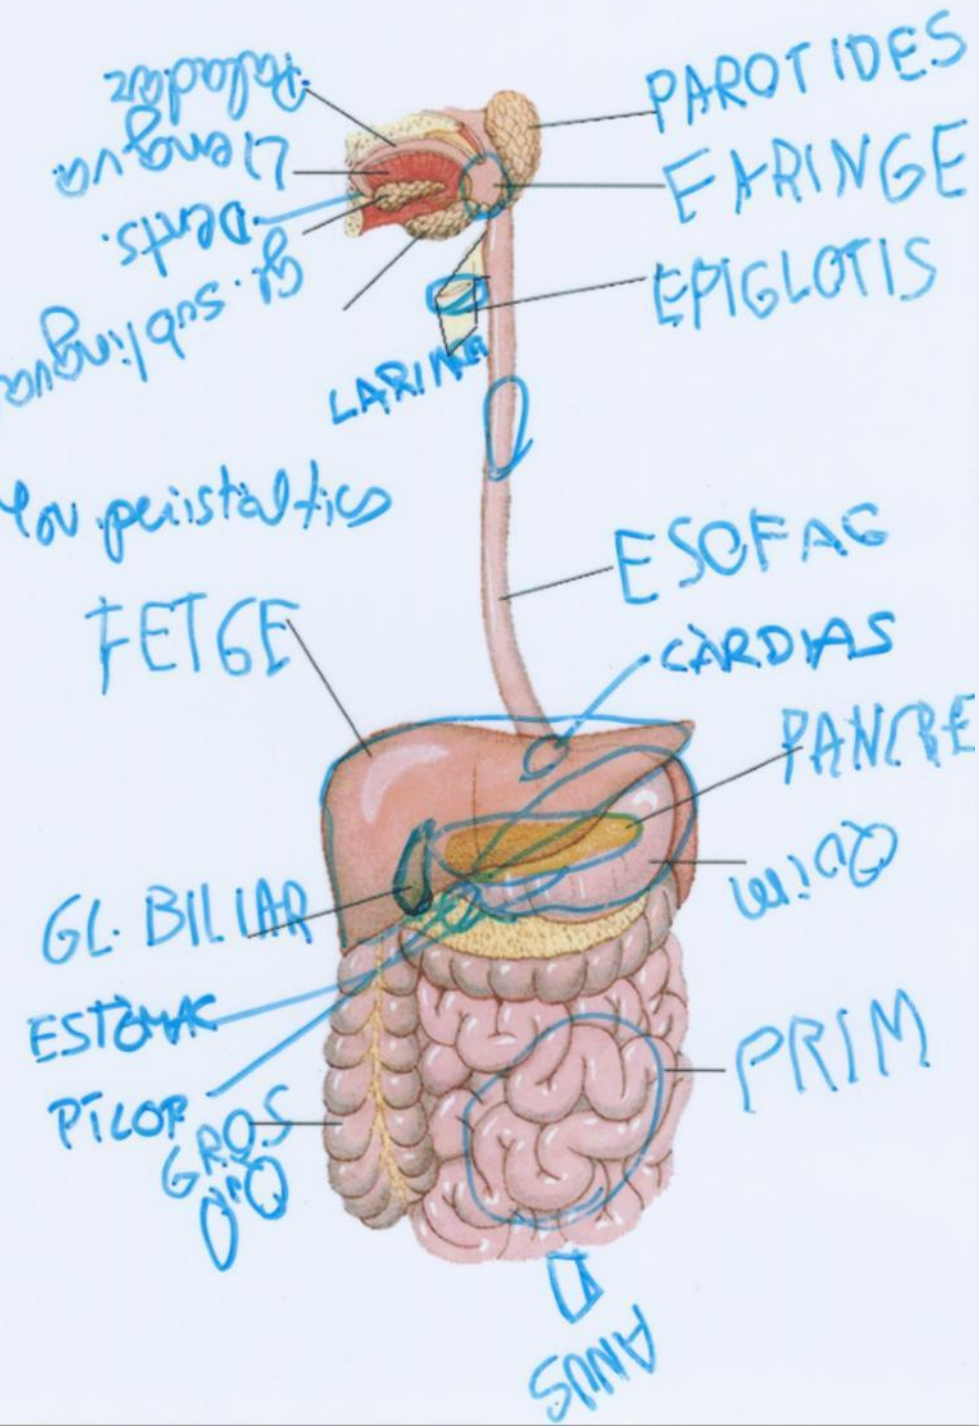 Paladar
Llengua
Dents.
gl. sublingua
PAROTIDES
FARINGE
EPIGLOTIS
LARING
peristaltico
ESOFAG
FETGE
CÀRDIAS
PANCRE
GL. BILIAR
ESTÒMAC
PÍLOR
GROS
PRIM
ANUS